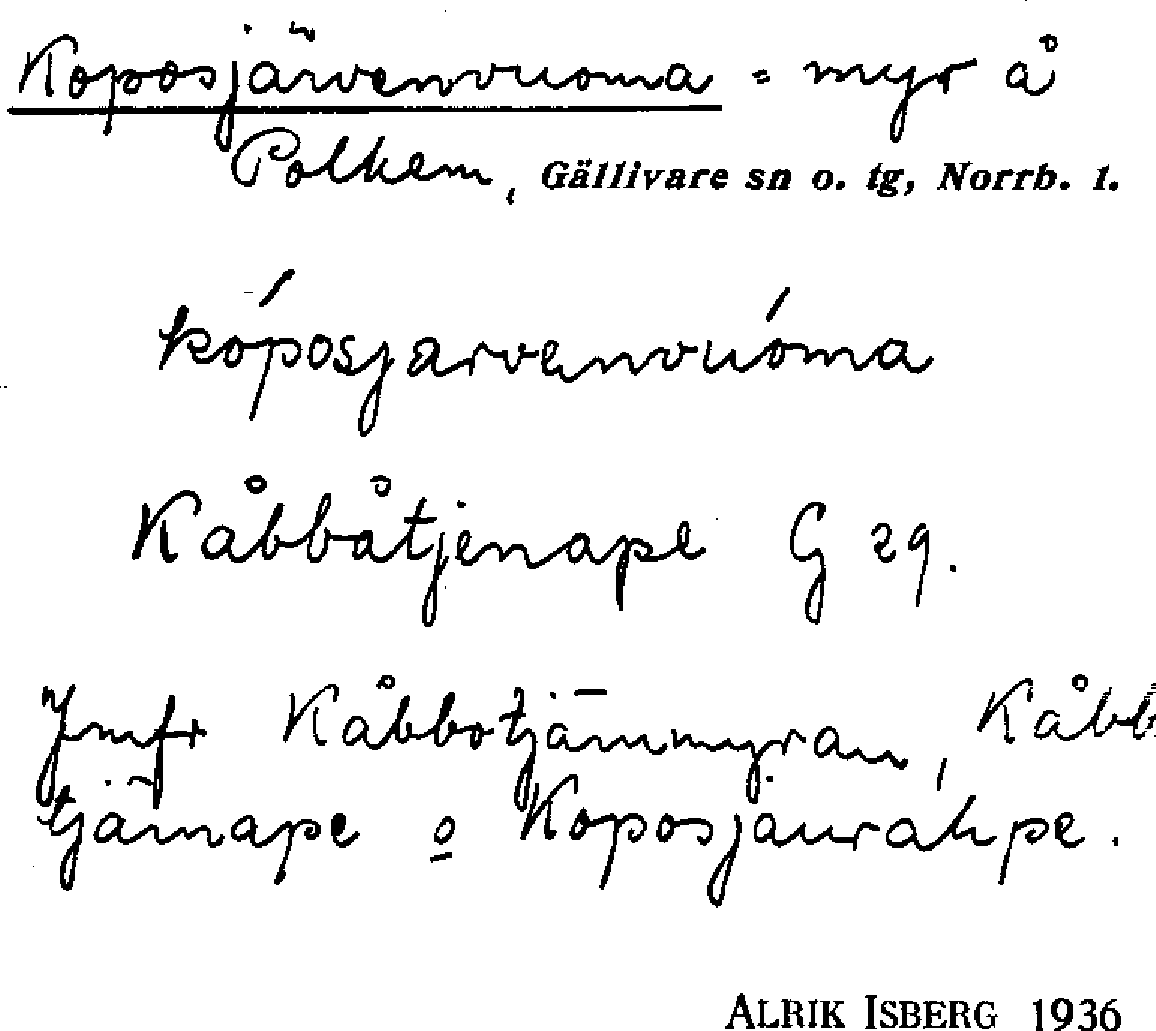 Koposjärvenvuoma = myr å
Polkem, Gällivare sn o. tg, Norrb. l.
kóposjarvenvuóma
Kåbbåtjenape G 29.
Jmfr Kåbbotjämmyran, Kåbb
tjärnape o Koposjauráhpe.
ALRIK ISBERG 1936